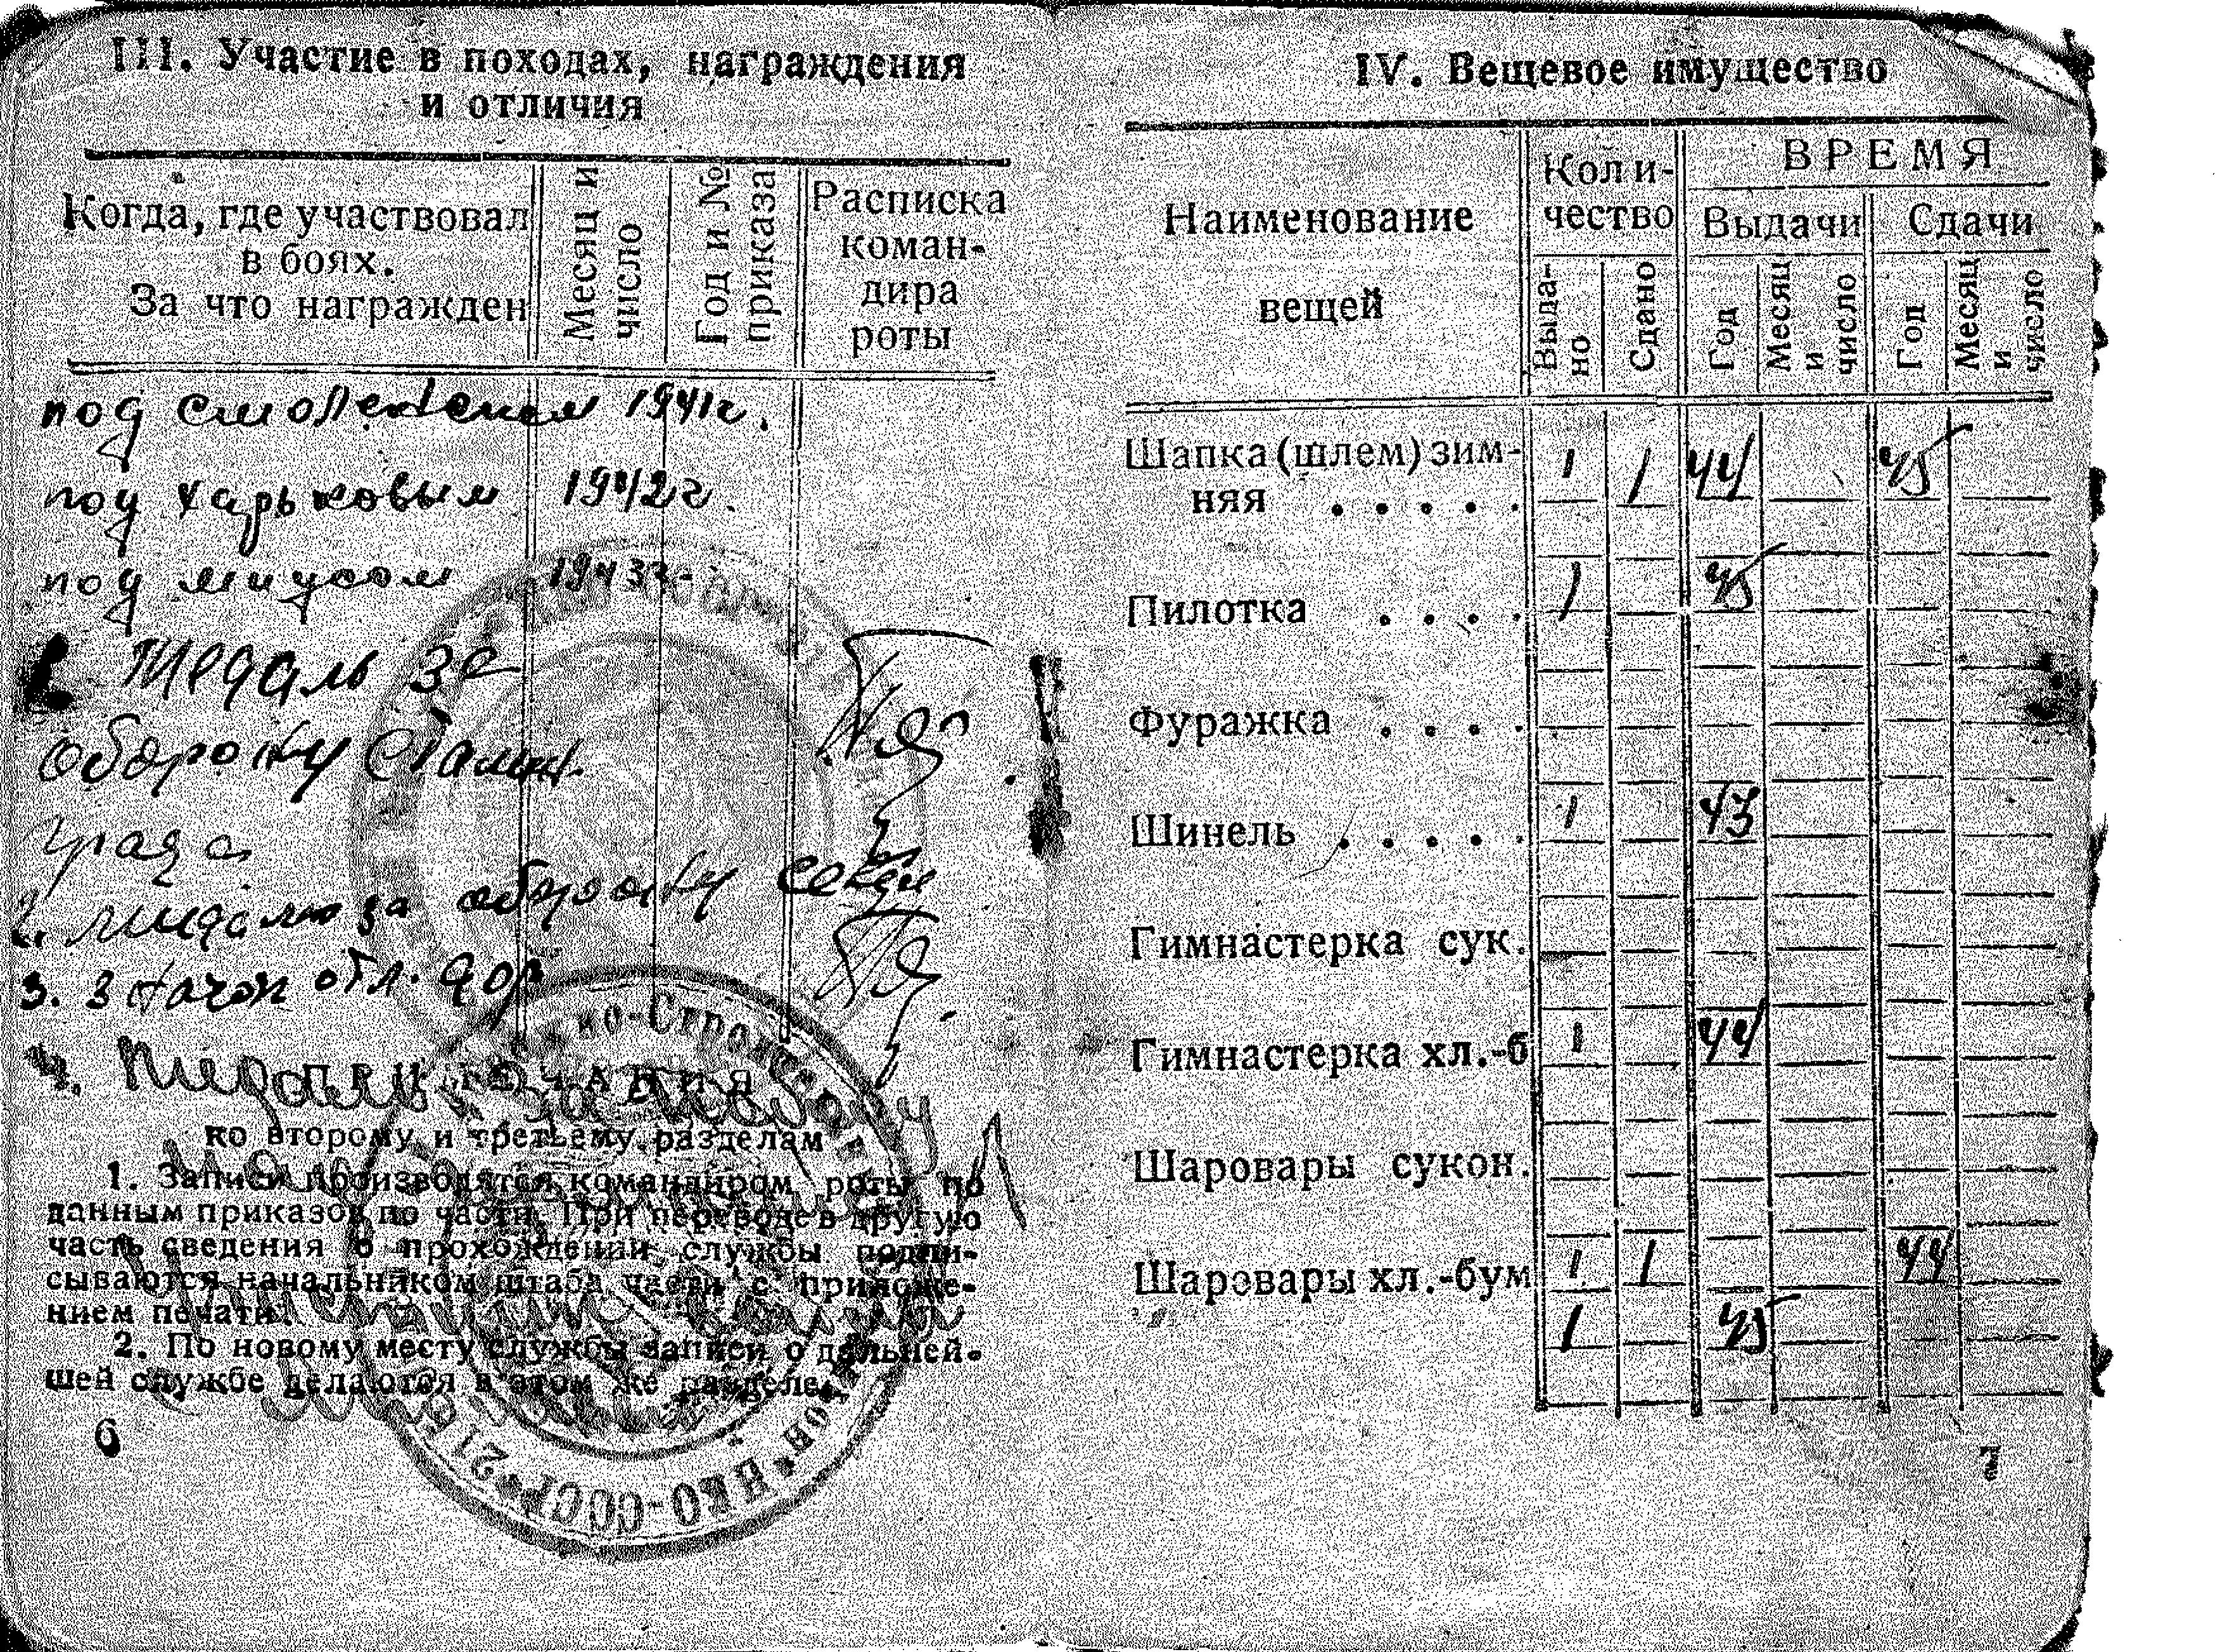 III. Участие в походах, награждения
и отличия
Когда, где участвовал
в боях.
За что награжден
Месяц и
число
Год и №
приказа
Расписка
коман-
дира
роты
под Смоленском 1941г.
под Харьковым 1942г.
под миусом 1943г.
1. Медаль за
оборону Сталин.
града
2. медаль за оборону
3. Значок отл. дор
4. Медаль за победу
ПРИМЕЧАНИЯ
ко второму и третьему разделам
1. Записи производятся командиром роты по
данным приказов по части. При переводе в другую
часть сведения о прохождении службы подпи-
сываются начальником штаба части с приложе-
нием печати.
2. По новому месту службы записи о дальней-
шей службе делаются в этом же разделе.
НКО-СССР * 21
6
IV. Вещевое имущество
Наименование
вещей
Коли-
чество
ВРЕМЯ
Выдачи
Сдачи
Выда-
но
Сдано
Год
Месяц
и
число
Год
Месяц
и
число
Шапка (шлем) зим-
няя . . . . . 1 1 44 45
Пилотка . . . . 1 45
Фуражка . . . .
Шинель . . . . . 1 43
Гимнастерка сук.
Гимнастерка хл.-б 1 44
Шаровары сукон.
Шаровары хл.-бум 1 1 44
1 45
7